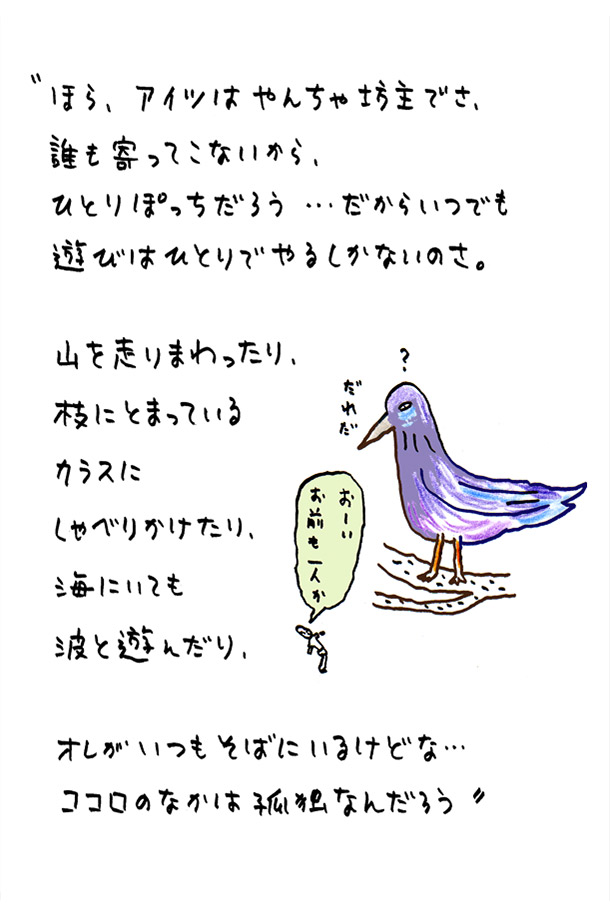 〝ほら、アイツは やんちゃ坊主でさ、
誰も寄ってこないから、
ひとりぽっちだろう …だからいつでも
遊びはひとりでやるしかないのさ。
山を走りまわったり、
枝にとまっている
カラスに
しゃべりかけたり、
海にいても
波と遊んだり、
?
だれだ
おーい
お前も一人か
オレがいつもそばにいるけどな…
ココロのなかは孤独なんだろう〟